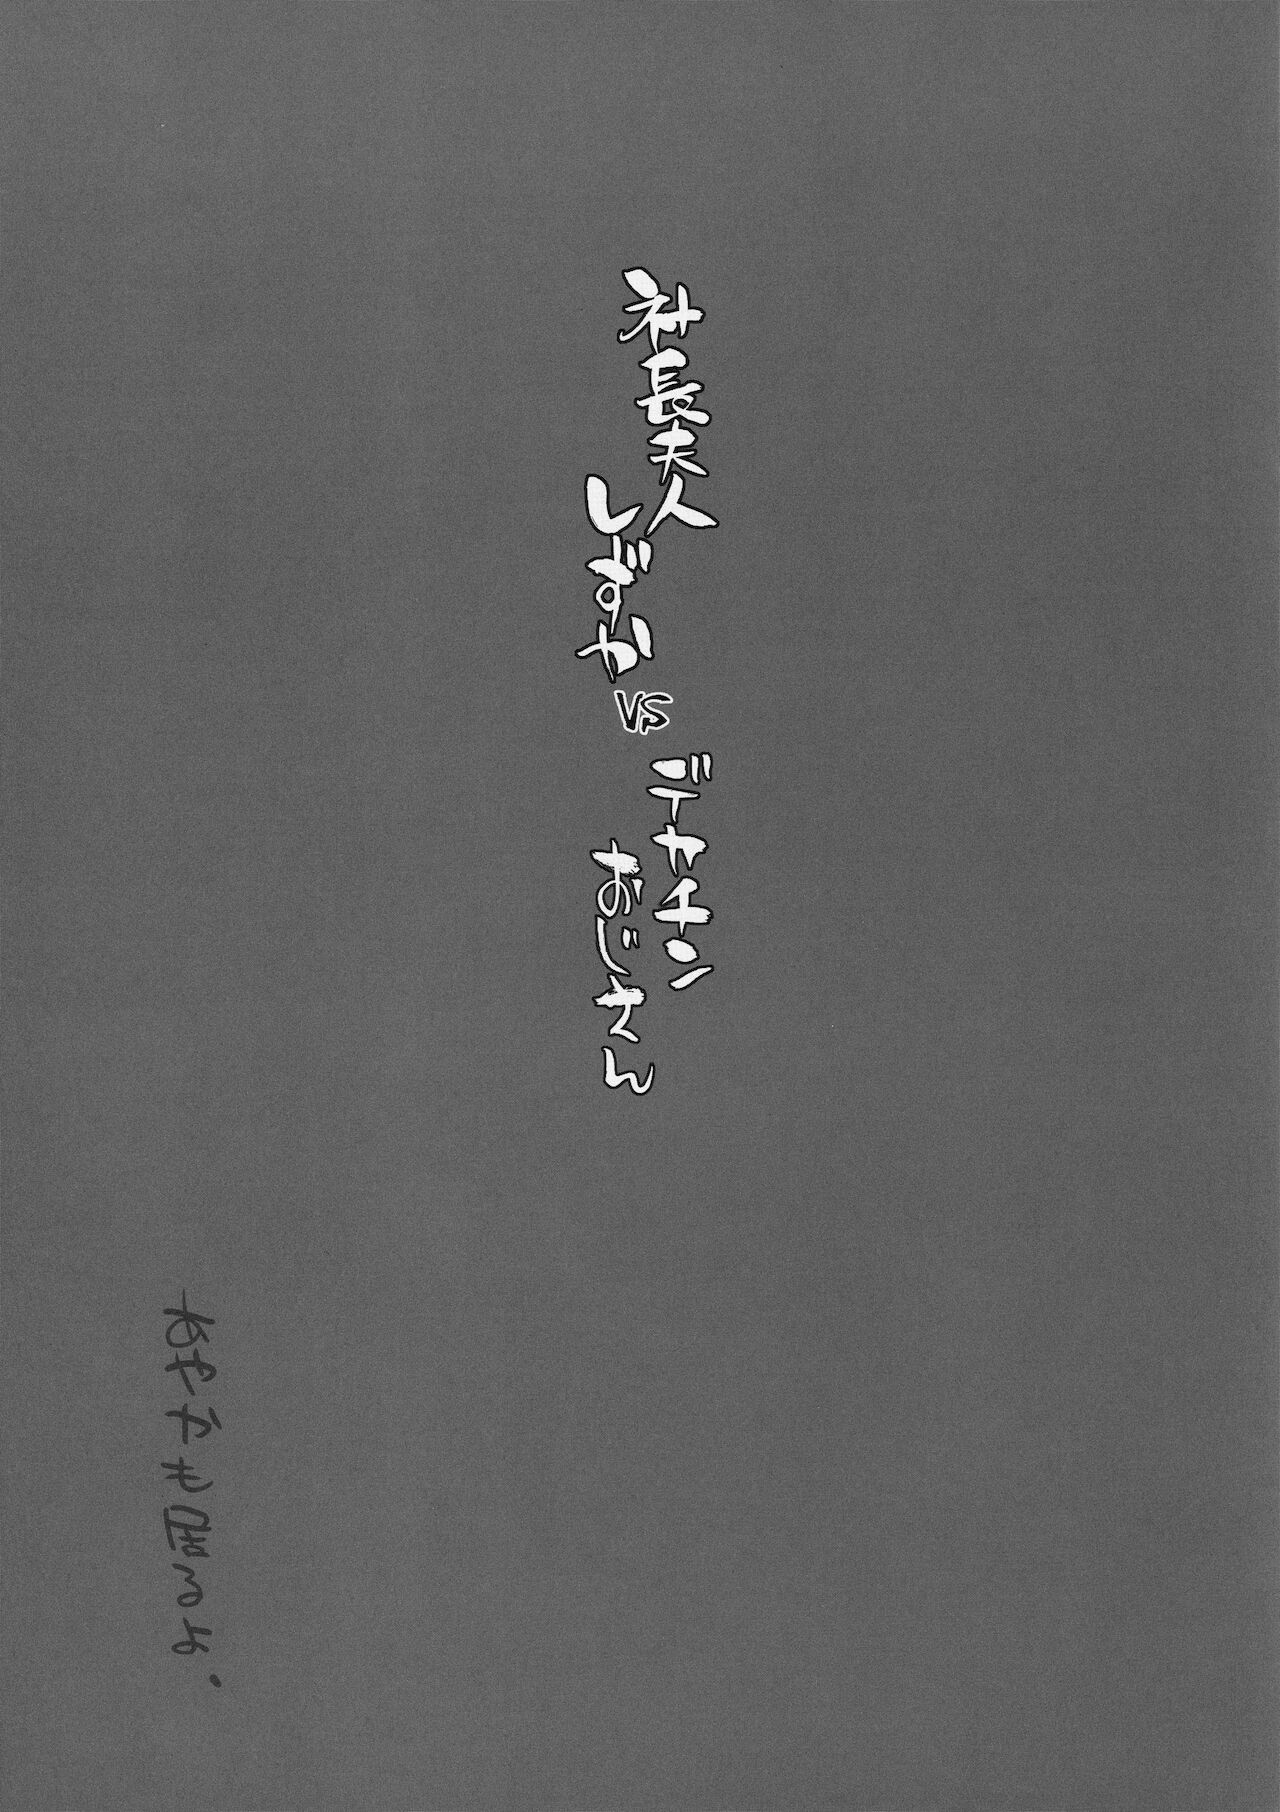 社長夫人
しずか
VS
デカチン
おじさん
あやかも居るよ.